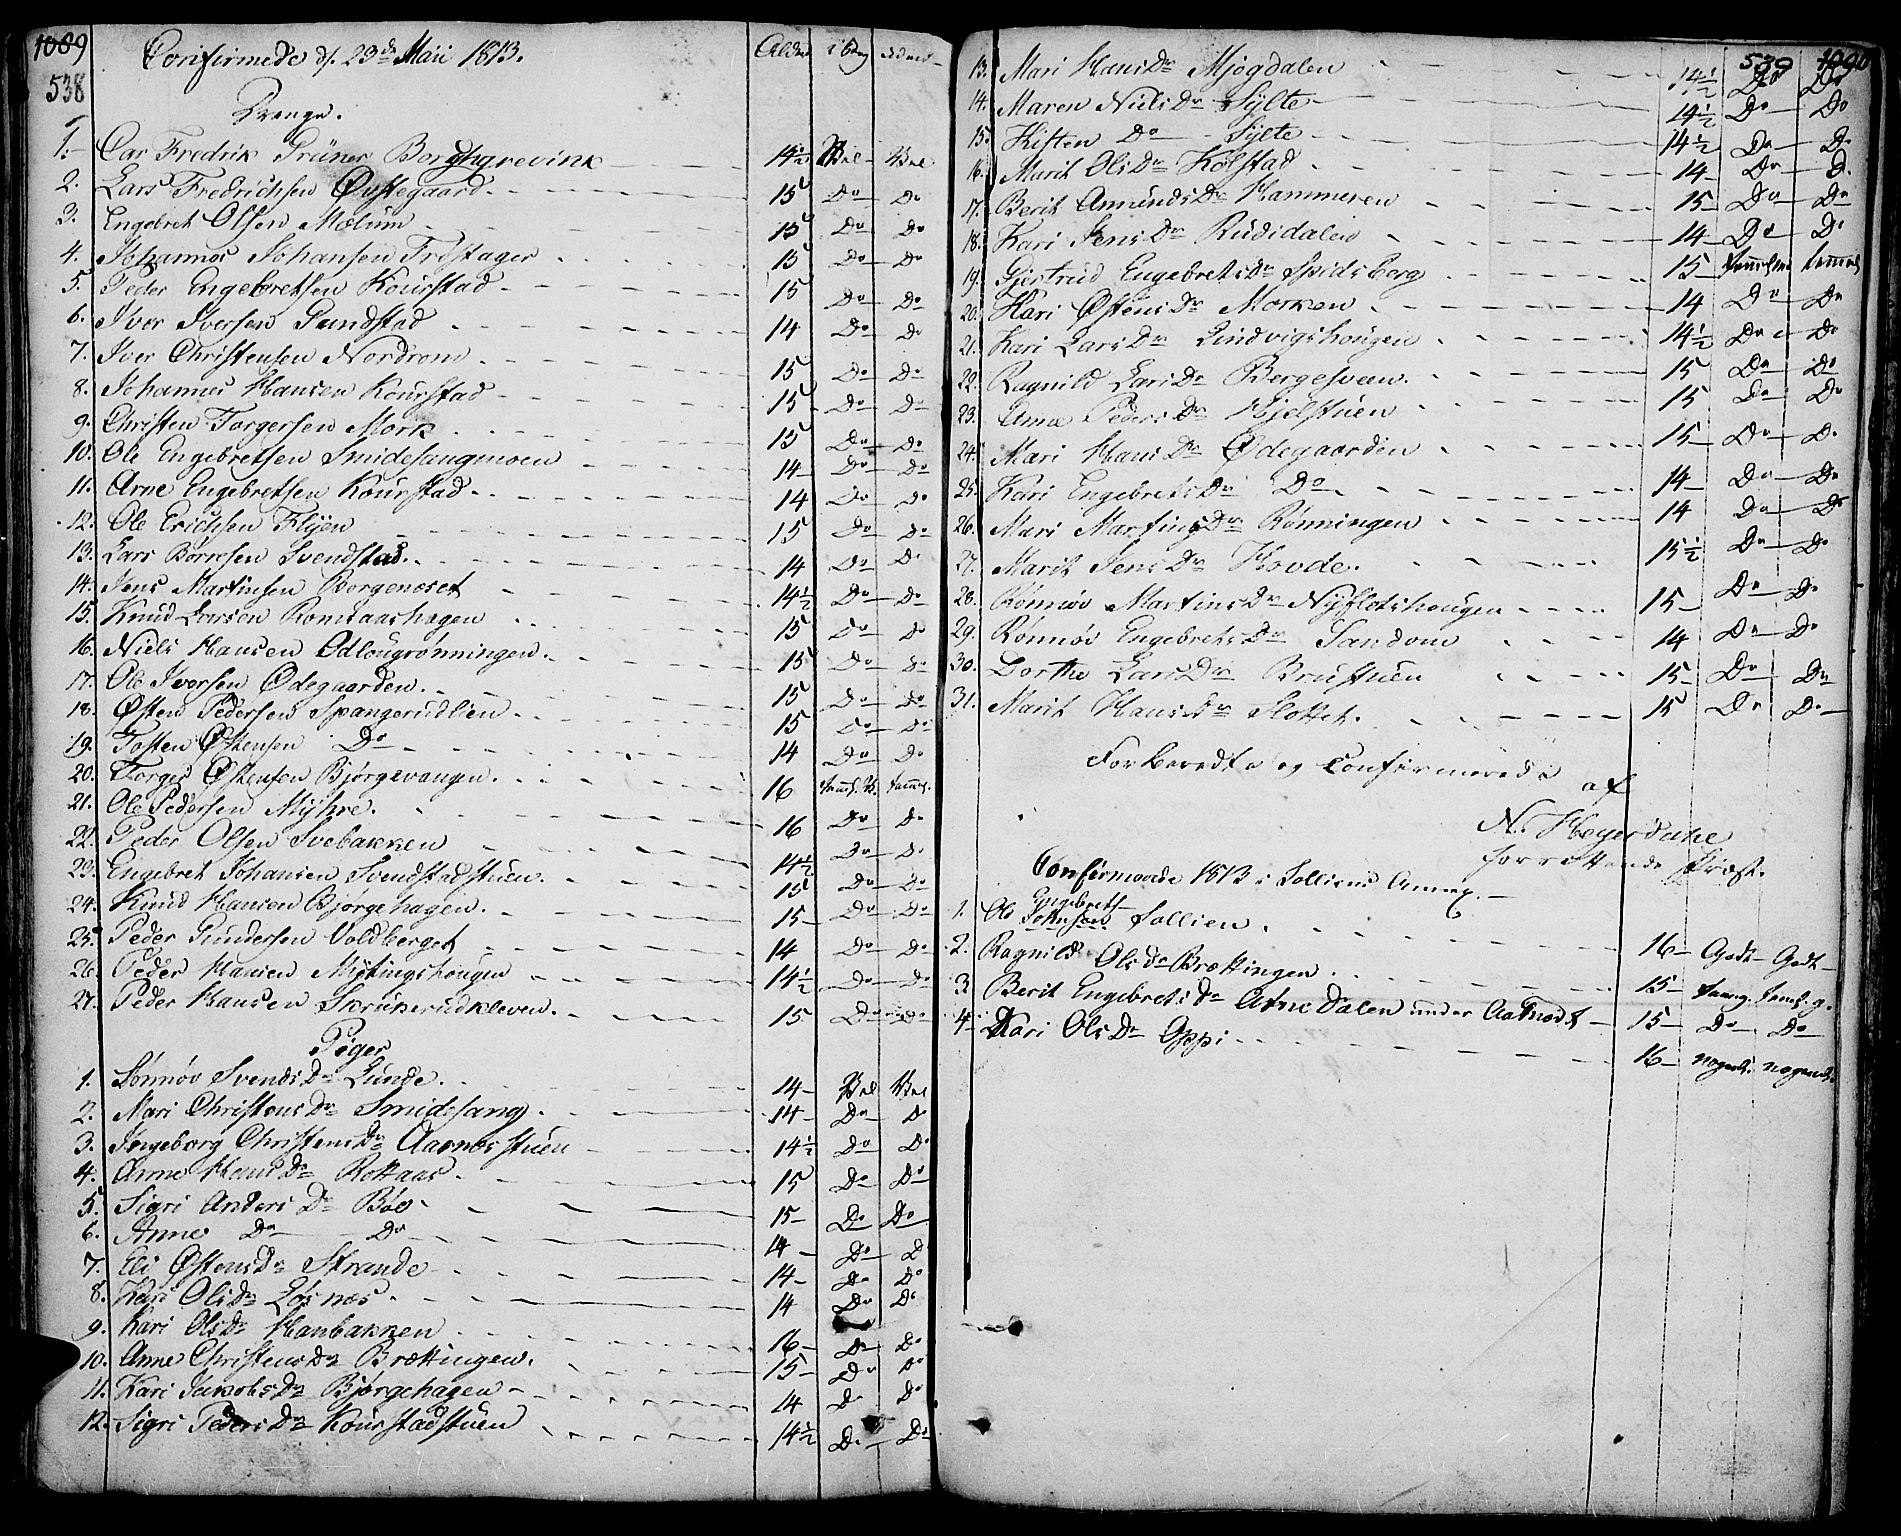 1089
538
Confirmede d. 23de Maii 1813. Alder i Bog udend
Drenge.
1. Car Fredrik Grüner Borchgrevink 14 1/2 Vel Vel
2. Lars Fredrichsen Øvstegaard 15 Do Do
3. Engebret Olsen Mælum 15 Do Do
4. Johannes Johansen Frøstager 15 Do Do
5. Peder Engebretsen Kourstad 15 Do Do
6. Iver Iversen Gundstad 14 Do Do
7. Iver Christensen Nordrom 15 Do Do
8. Johannes Hansen Kourstad 15 Do Do
9. Christen Torgersen Mork 15 Do Do
10. Ole Engebretsen Smidesangmoen 14 Do Do
11. Arne Engebretsen Kourstad 14 Do Do
12. Ole Erichsen Flyen 15 Do Do
13. Lars Børresen Svendstad 14 Do Do
14. Jens Martinsen Borgenoset 14 1/2 Do Do
15. Knud Larsen Romsaashagen 15 Do Do
16. Niels Hansen Odlougrønningen 15 Do Do
17. Ole Iversen Ødegaarden 15 Do Do
18. Østen Pedersen Spangerudlien 15 Do Do
19. Tosten Østensen Do 14 Do Do
20. Torger Østensen Bjørgevangen 16 temel. V. temel.
21. Ole Pedersen Myhre 16 Do Do
22. Peder Olsen Svebakken 14 1/2 Do Do
23. Engebret Johansen Svendstadstuen 15 Do Do
24. Knud Hansen Bjørgehagen 15 Do Do
25. Peder Gundersen Voldberget 14 Do Do
26. Peder Hansen Mytingshougen 14 1/2 Do Do
27. Peder Hansen Skrukerudkleven 15 Do Do
Piger
1. Sønnøv Svends Dr Lunde 14 Vel Vel
2. Mari Christens Dr Smidesang 14 Do Do
3. Ingeborg Christens Dr Aarnesstuen 14 1/2 Do Do
4. Anne Hans Dr Rottaas 15 Do Do
5. Sigri Anders Dr Bøe 15 Do Do
6. Anne Do Do 14 Do D
7. Eli Østens Dr Strande 14 Do Do
8. Kari Ols Dr Løsnæs 14 Do Do
9. Kari Ols Dr Hanbakken 16 Do Do
10. Anne Christens Dr Brættingen 15 Do Do
11. Kari Jakobs Dr Bjørgehagen 14 D Do
12. Sigri Peders Dr Kourstadstuen 14 1/2 Do Do
539 1090
13. Mari Hans Dr Mjøgdalen 14 1/2 Do Do
14. Maren Niels Dr Sylte 14 1/2 Do Do
15. Kisten Do Sylte 14 1/2 Do Do
16. Marit Ols Dr Kolstad 14 Do D.
17. Berit Amunds Dr Hammeren 15 Do Do
18. Kari Jens Dr Rudidalen 14 Do Do
19. Gjertrud Engebrets Dr Spidsberg 15 temel temel
20. Kari Østens Dr Morken 14 Do Do
21. Kari Lars Dr Lindvigshougen 14 1/2 Do Do
22. Ragnild Lars Dr Bergesveen 15 Do Do
23. Anne Peders Dr Hjelstuen 15 Do Do
24. Mari Hans Dr Ødegaarden 15 Do Do
25. Kari Engebrets Dr Do 14 Do Do
26. Mari Martins Dr Rønningen 14 Do Do
27. Marit Jens Dr Hovde 15 1/2 Do Do
28. Rønnøv Martins Dr Nyfletshougen 15 Do Do
29. Rønnøv Engebrets Dr Sandom 14 Do Do
30. Dorthe Lars Dr Brustuen 15 Do Do
31. Marit Hans Dr Slottet 15 Do Do
Forberedte og Confirmerede
af
N. Heyerdahl
forrettende Præst.
Confirmerede 1813 i Solliens Annex.
Engebrets
1. Ole Johnsen Sollien 16 Godt Godt
2. Ragnild Ols Dr Brættingen 15 temg. temel. g.
3. Berit Engebrets Dr Atnedalen under Aatnest 15 Do Do
4. Kari Ols Dr Oppi 16 nogenl. nogenl.